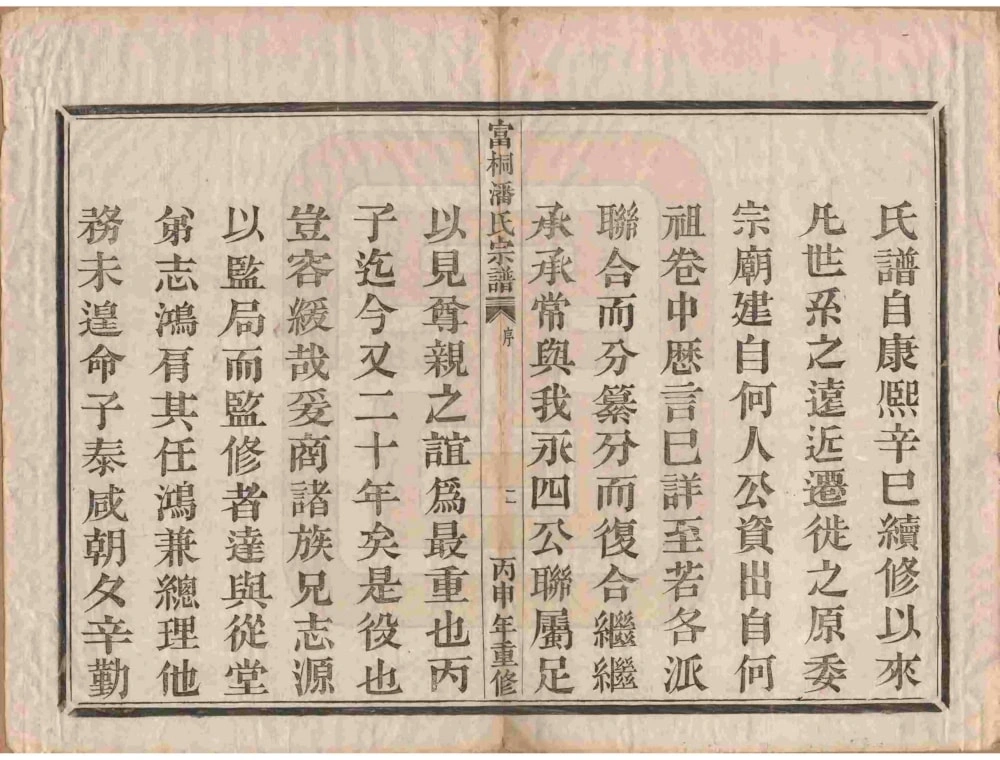 氏譜自康熙辛巳續修以來
凡世系之遠近遷徙之原委
宗廟建自何人公資出自何
祖卷中歷言巳詳至若各派
聯合而分纂分而復合繼繼
承承常與我永四公聯屬足
富桐潘氏宗譜 序 二 丙申年重修
以見尊親之誼爲最重也丙
子迄今又二十年矣是役也
豈容緩哉爰商諸族兄志源
以監局而監修者達與從堂
弟志鴻肩其任鴻兼總理他
務未遑命子泰咸朝夕辛勤